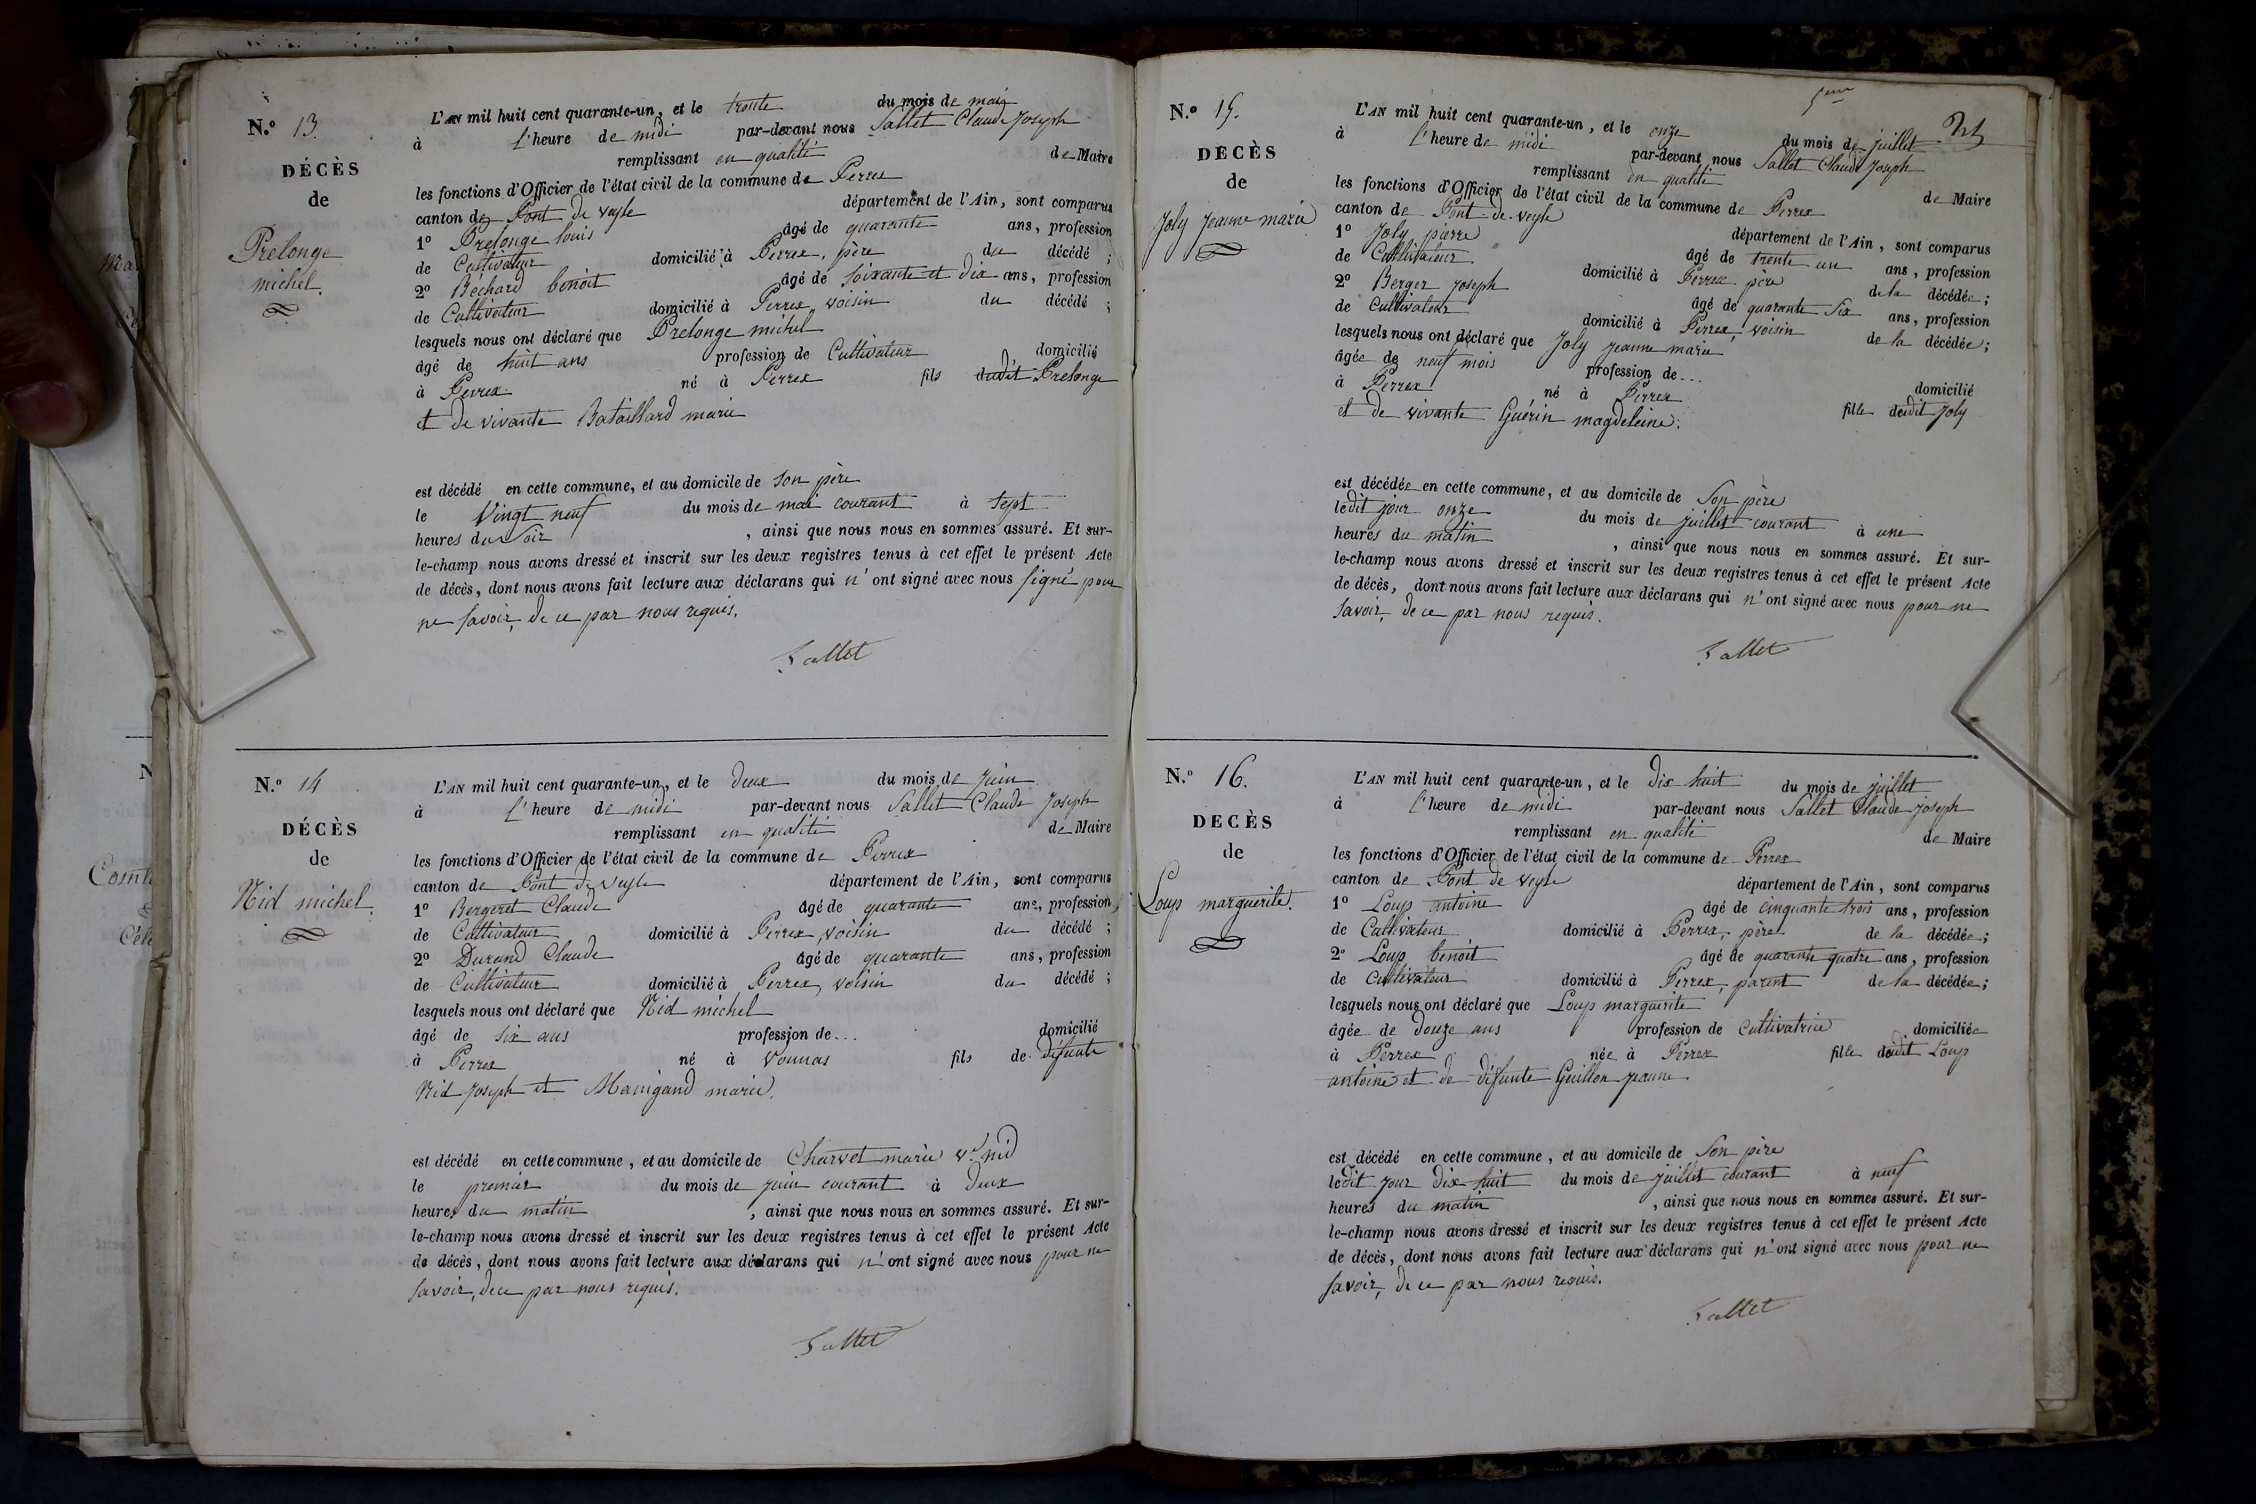 N.º 13.
DÉCÈS
de
Prelonge
michel.
L'AN mil huit cent quarante-un, et le trente du mois de mai
à l'heure de midi par-devant nous Sallet Claude Joseph
remplissant en qualité de Maire
les fonctions d'Officier de l'état civil de la commune de Perrex
canton de Pont de veyle département de l'Ain, sont comparus
1º Prelonge louis âgé de quarante ans, profession
de Cultivateur domicilié à Perrex, père du décédé ;
2º Bechard benoit âgé de soixante et dix ans, profession
de Cultivateur domicilié à Perrex, voisin du décédé ;
lesquels nous ont déclaré que Prelonge michel
âgé de huit ans profession de Cultivateur domicilié
à Perrex né à Perrex fils dudit Prelonge
et de vivante Bataillard marie
est décédé en cette commune, et au domicile de son père
le Vingt neuf du mois de mai courant à sept
heures du soir , ainsi que nous nous en sommes assuré. Et sur-
le-champ nous avons dressé et inscrit sur les deux registres tenus à cet effet le présent Acte
de décès, dont nous avons fait lecture aux déclarans qui n'ont signé avec nous signé pour
ne savoir, de ce par nous requis.
Sallet
N.º 14
DÉCÈS
de
Nid michel.
L'AN mil huit cent quarante-un, et le deux du mois de juin
à l'heure de midi par-devant nous Sallet Claude Joseph
remplissant en qualité de Maire
les fonctions d'Officier de l'état civil de la commune de Perrex
canton de Pont de veyle département de l'Ain, sont comparus
1º Bergeret Claude âgé de quarante ans, profession
de Cultivateur domicilié à Perrex, voisin du décédé ;
2º Durand Claude âgé de quarante ans, profession
de Cultivateur domicilié à Perrex, voisin du décédé ;
lesquels nous ont déclaré que Nid michel
âgé de six ans profession de... domicilié
à Perrex né à Vonnas fils de défunte
Nid Joseph et Manigand marie.
est décédé en cette commune, et au domicile de Charvet marie v.e nid
le premier du mois de juin courant à deux
heures du matin , ainsi que nous nous en sommes assuré. Et sur-
le-champ nous avons dressé et inscrit sur les deux registres tenus à cet effet le présent Acte
de décès, dont nous avons fait lecture aux déclarans qui n'ont signé avec nous pour ne
savoir, de ce par nous requis.
Sallet
N.º 15.
DÉCÈS
de
Joly Jeanne marie
L'AN mil huit cent quarante-un, et le onze du mois de juillet
à l'heure de midi par-devant nous Sallet Claude Joseph
remplissant en qualité de Maire
les fonctions d'Officier de l'état civil de la commune de Perrex
canton de Pont de veyle département de l'Ain, sont comparus
1º Joly pierre âgé de trente un ans, profession
de Cultivateur domicilié à Perrex père de la décédée ;
2º Berger Joseph âgé de quarante six ans, profession
de Cultivateur domicilié à Perrex, voisin de la décédée ;
lesquels nous ont déclaré que Joly jeanne marie
âgée de neuf mois profession de... domicilié
à Perrex né à Perrex fille dudit Joly
et de vivante Guérin magdeleine.
est décédée en cette commune, et au domicile de Son père
ledit jour onze du mois de juillet courant à une
heures du matin , ainsi que nous nous en sommes assuré. Et sur-
le-champ nous avons dressé et inscrit sur les deux registres tenus à cet effet le présent Acte
de décès, dont nous avons fait lecture aux déclarans qui n'ont signé avec nous pour ne
savoir, de ce par nous requis.
Sallet
N.º 16.
DECÈS
de
Loup marguerite.
L'AN mil huit cent quarante-un, et le dix huit du mois de juillet
à l'heure de midi par-devant nous Sallet Claude Joseph
remplissant en qualité de Maire
les fonctions d'Officier de l'état civil de la commune de Perrex
canton de Pont de veyle département de l'Ain, sont comparus
1º Loup antoine âgé de cinquante trois ans, profession
de Cultivateur domicilié à Perrex, père de la décédée ;
2º Loup benoit âgé de quarante quatre ans, profession
de Cultivateur domicilié à Perrex, parent de la décédée ;
lesquels nous ont déclaré que Loup marguerite
âgée de douze ans profession de Cultivatrice domiciliée
à Perrex née à Perrex fille dudit Loup
antoine et de défunte Guillon jeanne
est décédé en cette commune, et au domicile de Son père
ledit jour dix huit du mois de juillet courant à neuf
heures du matin , ainsi que nous nous en sommes assuré. Et sur-
le-champ nous avons dressé et inscrit sur les deux registres tenus à cet effet le présent Acte
de décès, dont nous avons fait lecture aux déclarans qui n'ont signé avec nous pour ne
savoir, de ce par nous requis.
Sallet